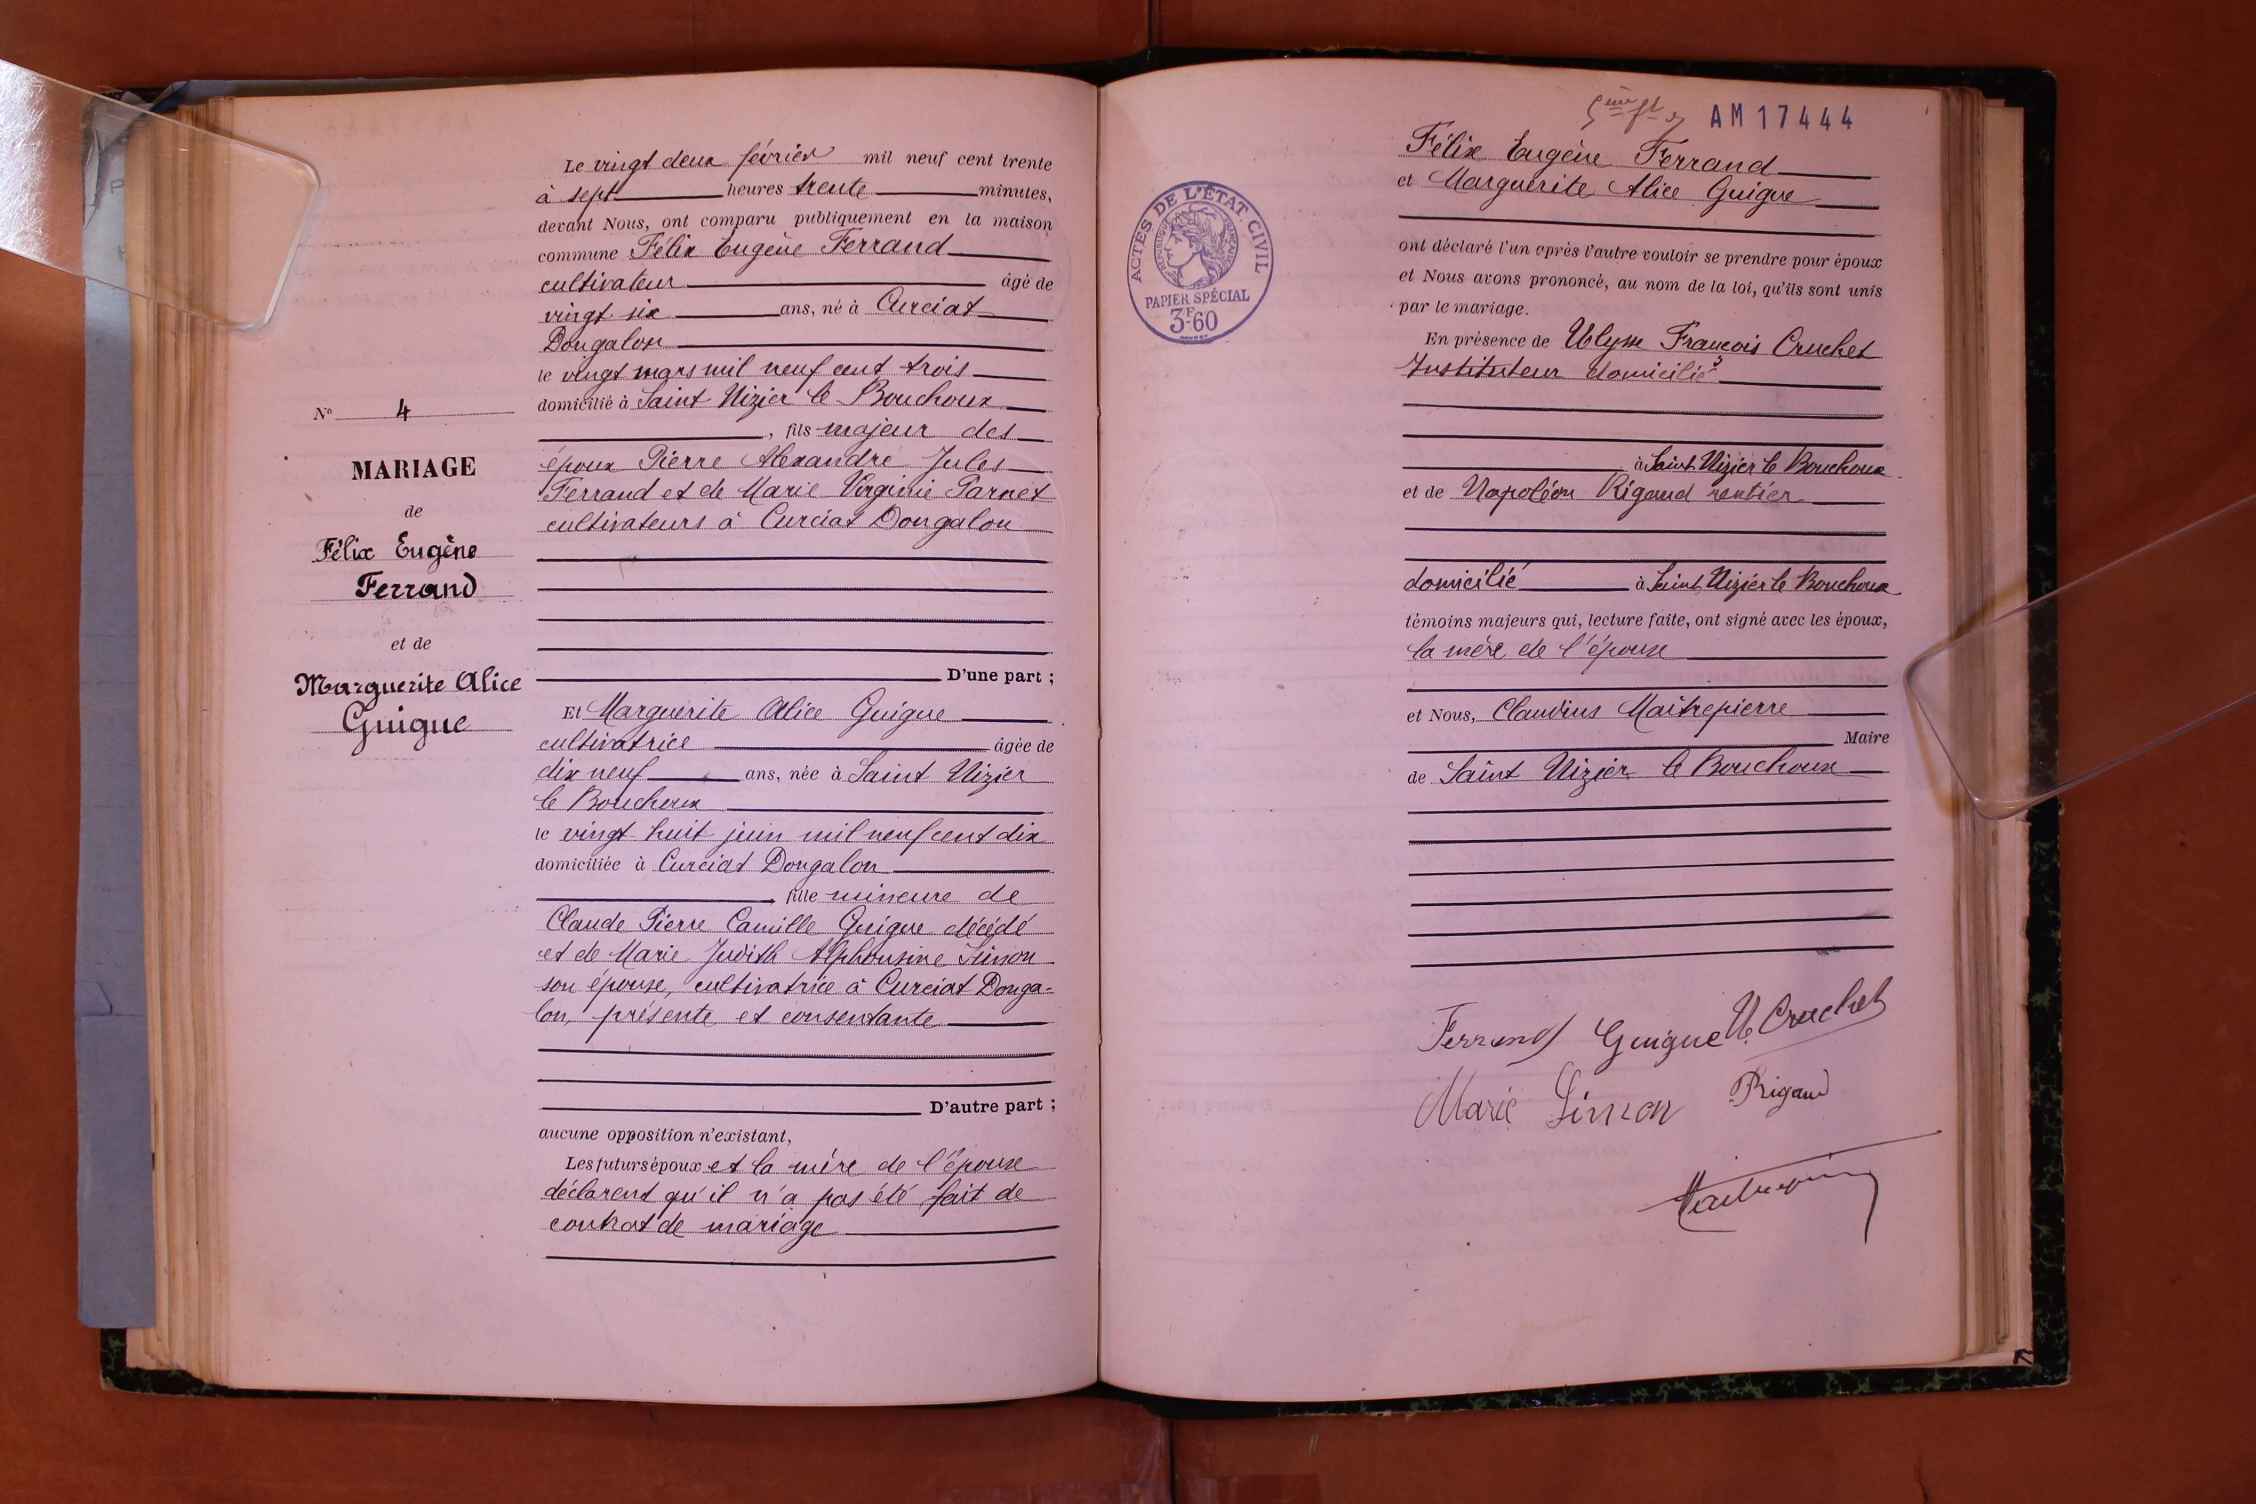 Le vingt deux février mil neuf cent trente
à sept heures trente minutes,
devant Nous, ont comparu publiquement en la maison
commune Félix Eugène Ferrand
cultivateur âgé de
vingt six ans, né à Curciat
Dongalon
le vingt mars mil neuf cent trois
domicilié à Saint Nizier le Bouchoux
, fils majeur des
époux Pierre Alexandre Jules
Ferrand et de Marie Virginie Parnet
cultivateurs à Curciat Dongalon
D'une part ;
Et Marguerite Alice Guigue
cultivatrice âgée de
dix neuf ans, née à Saint Nizier
le Bouchoux
le vingt huit juin mil neuf cent dix
domiciliée à Curciat Dongalon
, fille mineure de
Claude Pierre Camille Guigue décédé
et de Marie Judith Alphonsine Simon
son épouse, cultivatrice à Curciat Donga-
lon, présente et consentante
D'autre part ;
aucune opposition n'existant,
Les futurs époux et la mère de l'épouse
déclarent qu'il n'a pas été fait de
contrat de mariage
N° 4
MARIAGE
de
Félix Eugène
Ferrand
et de
Marguerite Alice
Guigue
AM 17444
ACTES DE L'ÉTAT CIVIL
PAPIER SPÉCIAL
3F60
Félix Eugène Ferrand
et Marguerite Alice Guigue
ont déclaré l'un après l'autre vouloir se prendre pour époux
et Nous avons prononcé, au nom de la loi, qu'ils sont unis
par le mariage.
En présence de Ulysse François Cruchet
Instituteur domicilié
à Saint Nizier le Bouchoux
et de Napoléon Rigaud rentier
domicilié à Saint Nizier le Bouchoux
témoins majeurs qui, lecture faite, ont signé avec les époux,
la mère de l'épouse
et Nous, Claudius Maitrepierre
Maire
de Saint Nizier le Bouchoux
Ferrand Guigue U. Cruchet
Marie Simon Rigaud
Maitrepierre